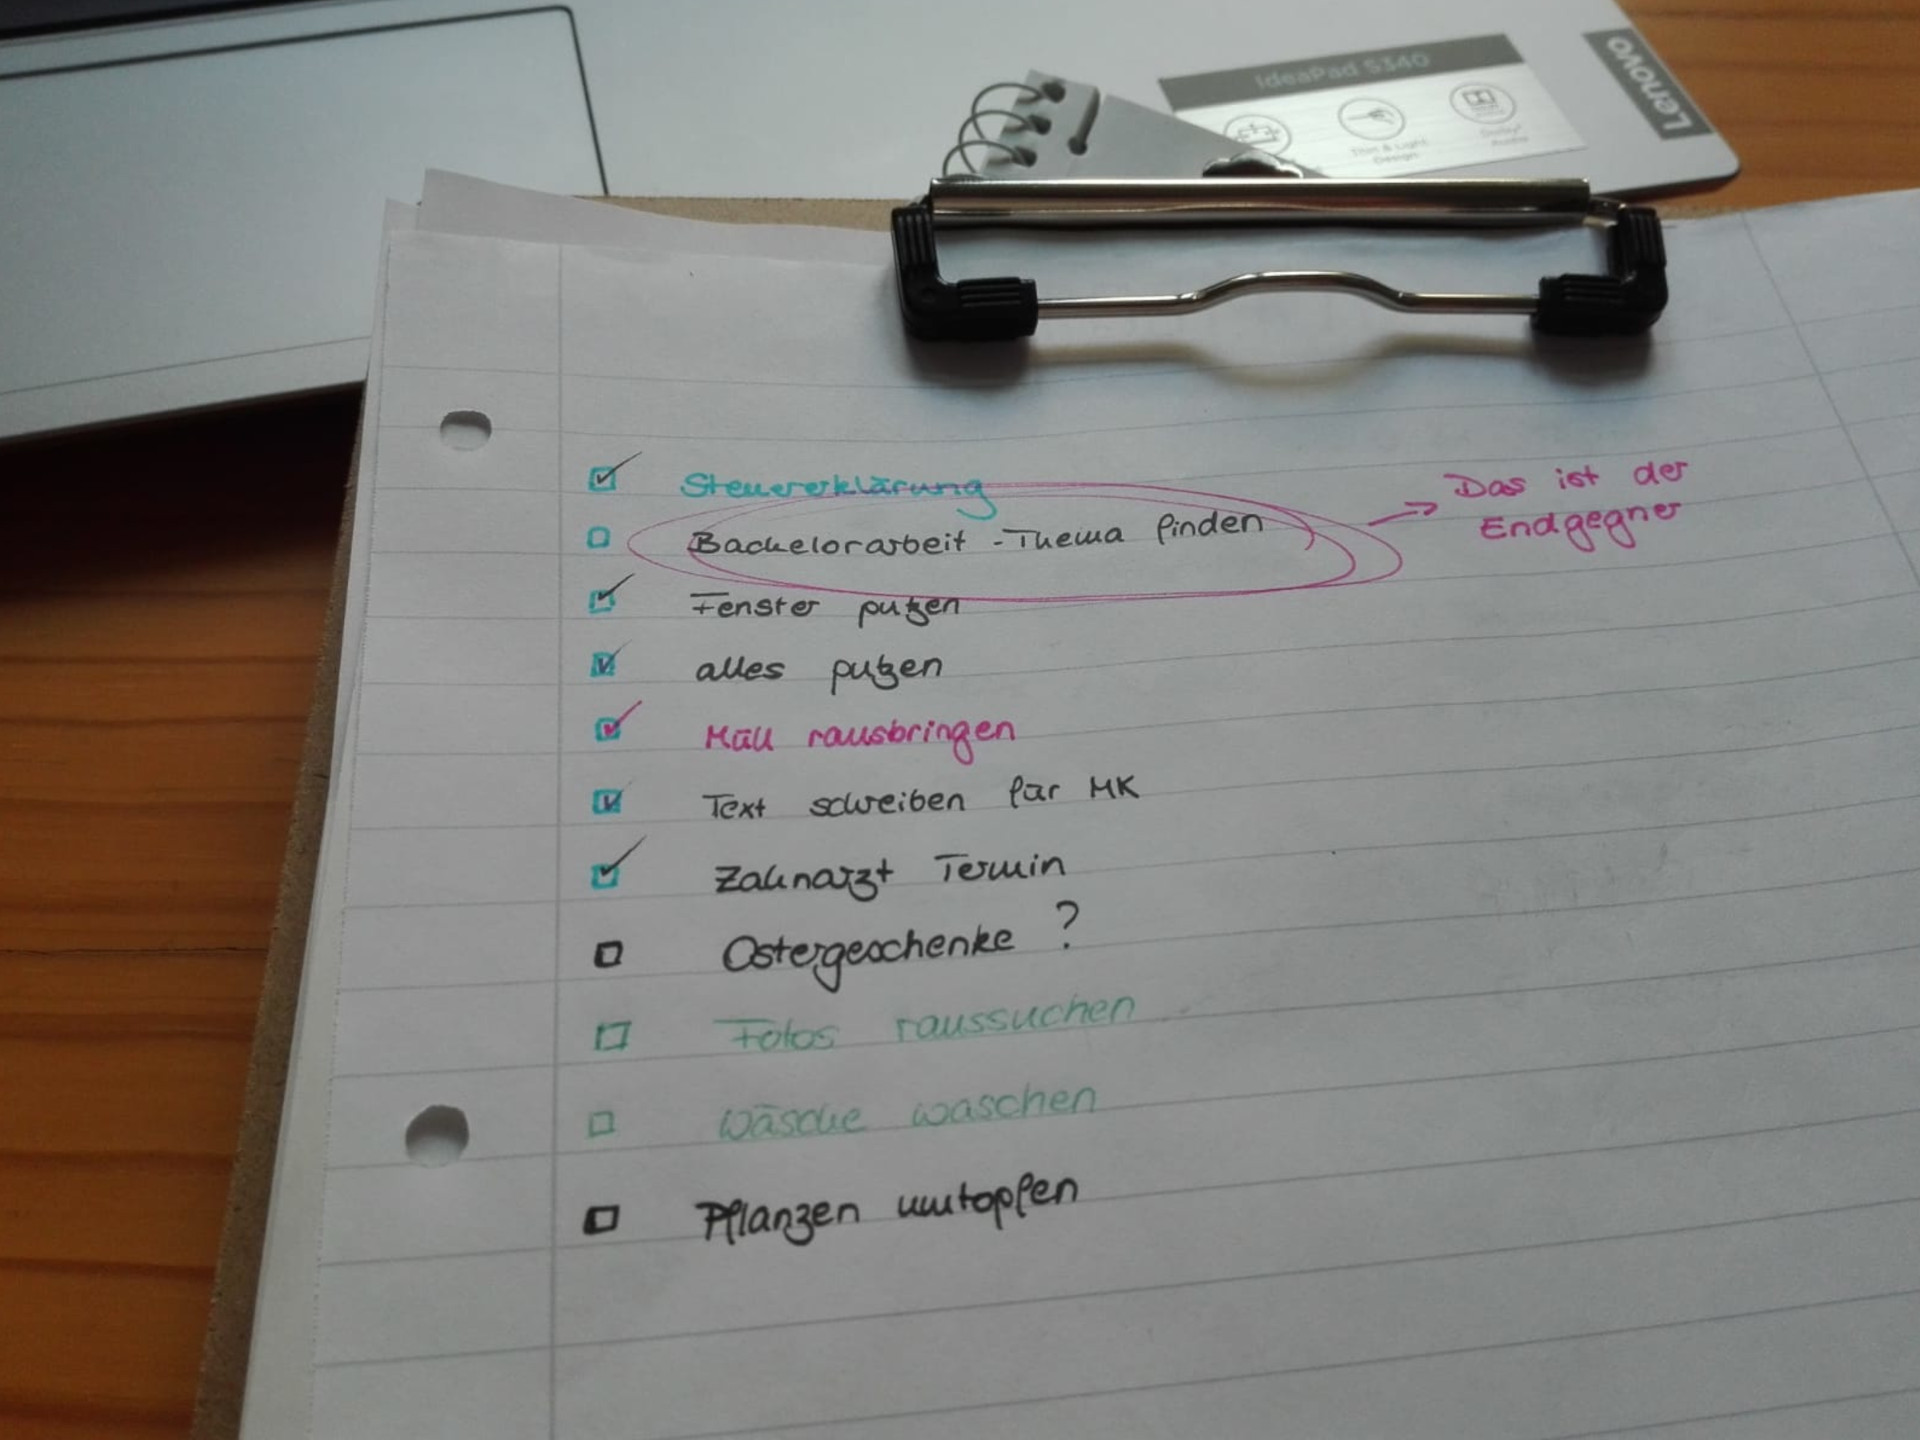 IdeaPad S340
Lenovo
Thin & Light
Design
Dolby
Audio
Steuererklärung
Bachelorarbeit - Thema finden
Das ist der
Endgegner
Fenster putzen
alles putzen
Müll rausbringen
Text schreiben für MK
Zahnarzt Termin
Ostergeschenke ?
Fotos raussuchen
Wäsche waschen
Pflanzen umtopfen